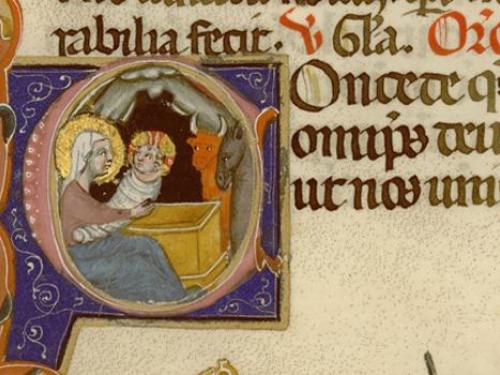 rabilia fecit. V Gl'a. Or
Oncede q
omips deu
ut nos uni